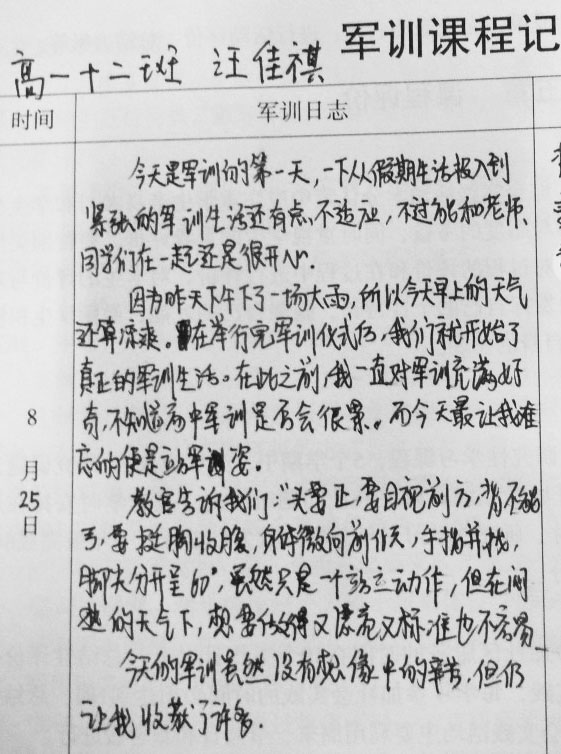 军训课程记
高一十二班 汪佳祺
时间 军训日志
今天是军训的第一天,一下从假期生活投入到
紧张的军训生活还有点不适应,不过能和老师、
同学们在一起还是很开心。
因为昨天下午下了一场大雨,所以今天早上的天气
还算凉爽。在举行完军训仪式后,我们就开始了
真正的军训生活。在此之前,我一直对军训充满好
奇,不知道高中军训是否会很累。而今天最让我难
忘的便是站军姿。
8月25日
教官告诉我们:“头要正,要目视前方,背不能
弓,要挺胸收腹,身体微向前倾,手指并拢,
脚尖分开呈60°,虽然只是一个站立动作,但在闷
热的天气下,想要做得又漂亮又标准也不容易
今天的军训虽然没有想像中的辛苦,但仍
让我收获了许多.